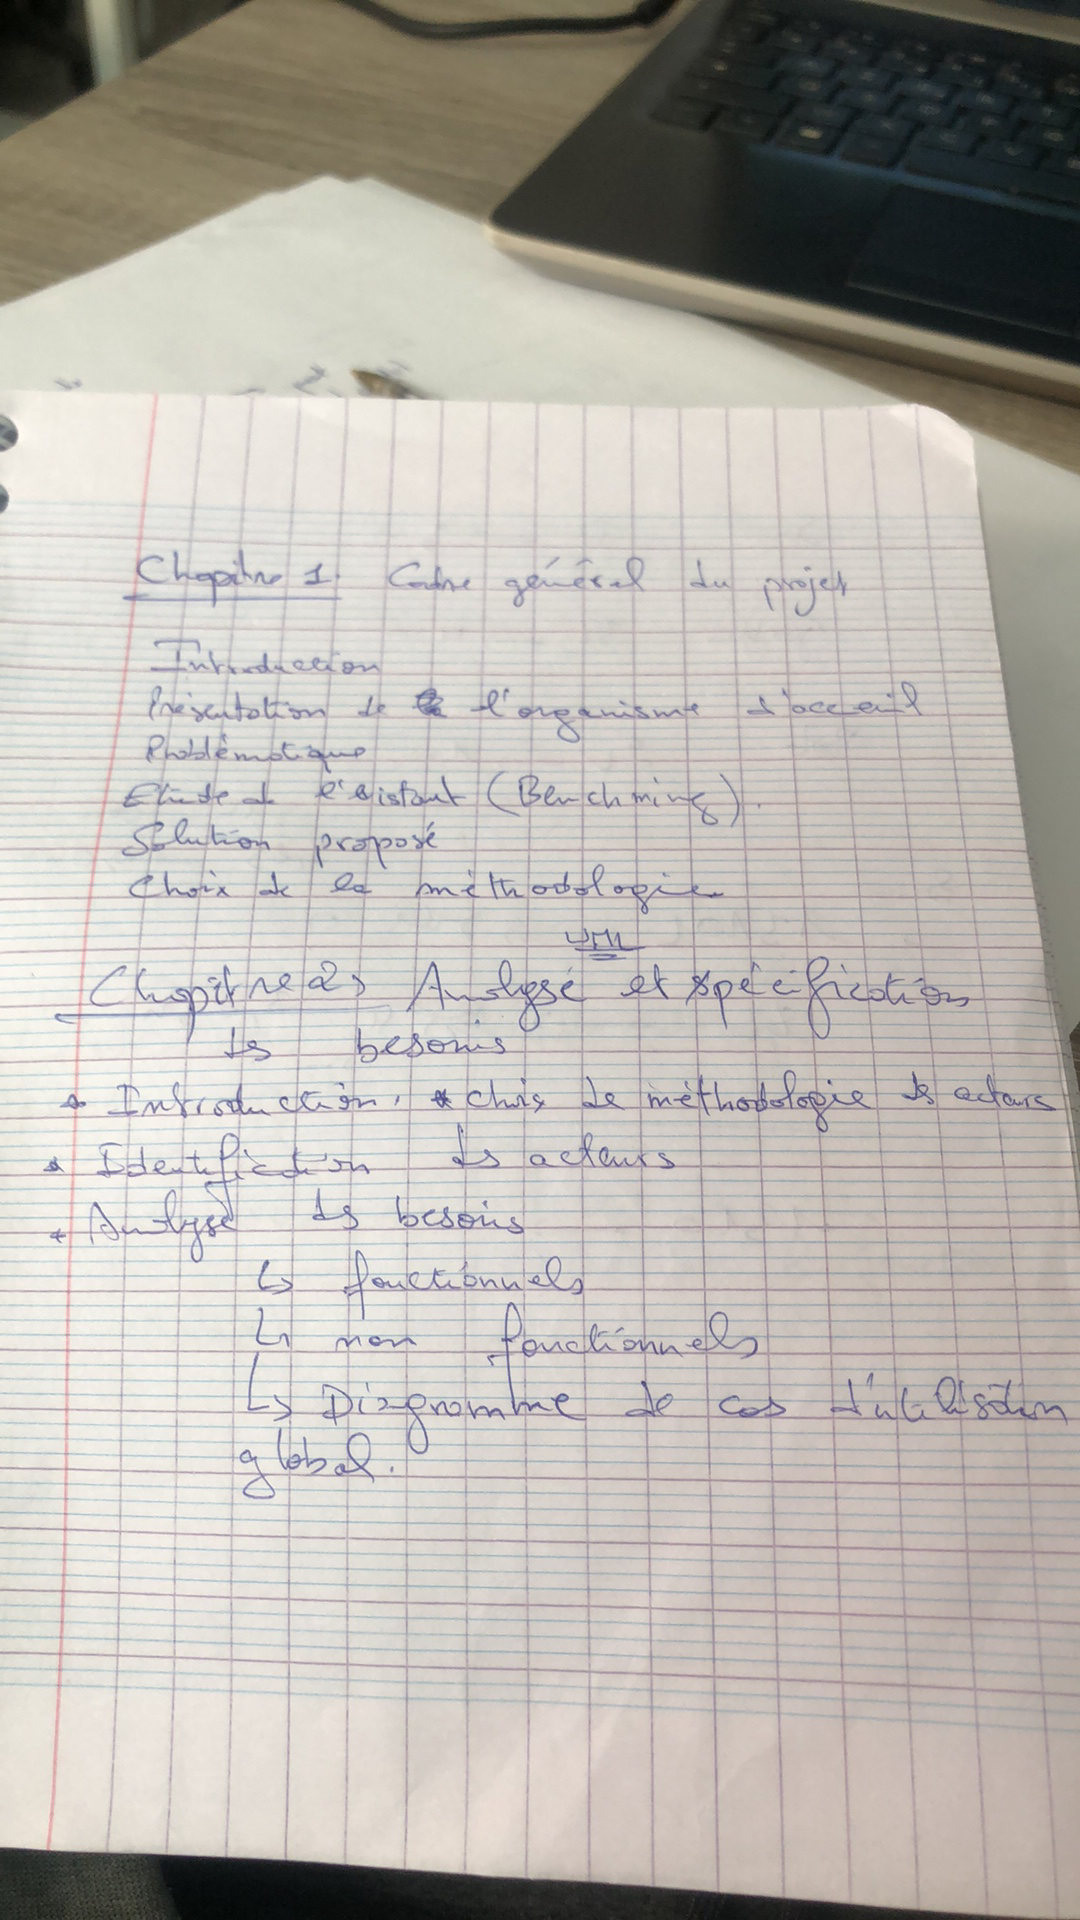 Chapitre 1: Cadre général du projet
Introduction
Présentation de l'organisme d'acceuil
Problématique
Etude de l'éxistant (Benchming).
Solution proposé
Choix de la méthodologie
UML
Chapitre 2: Analyse et spécification
des besoins
* Introduction, * choix de méthodologie des acteurs
* Identification des acteurs
* Analyse des besoins
↳ fonctionnels
↳ non fonctionnels
↳ Diagramme de cas d'utilisation
global.